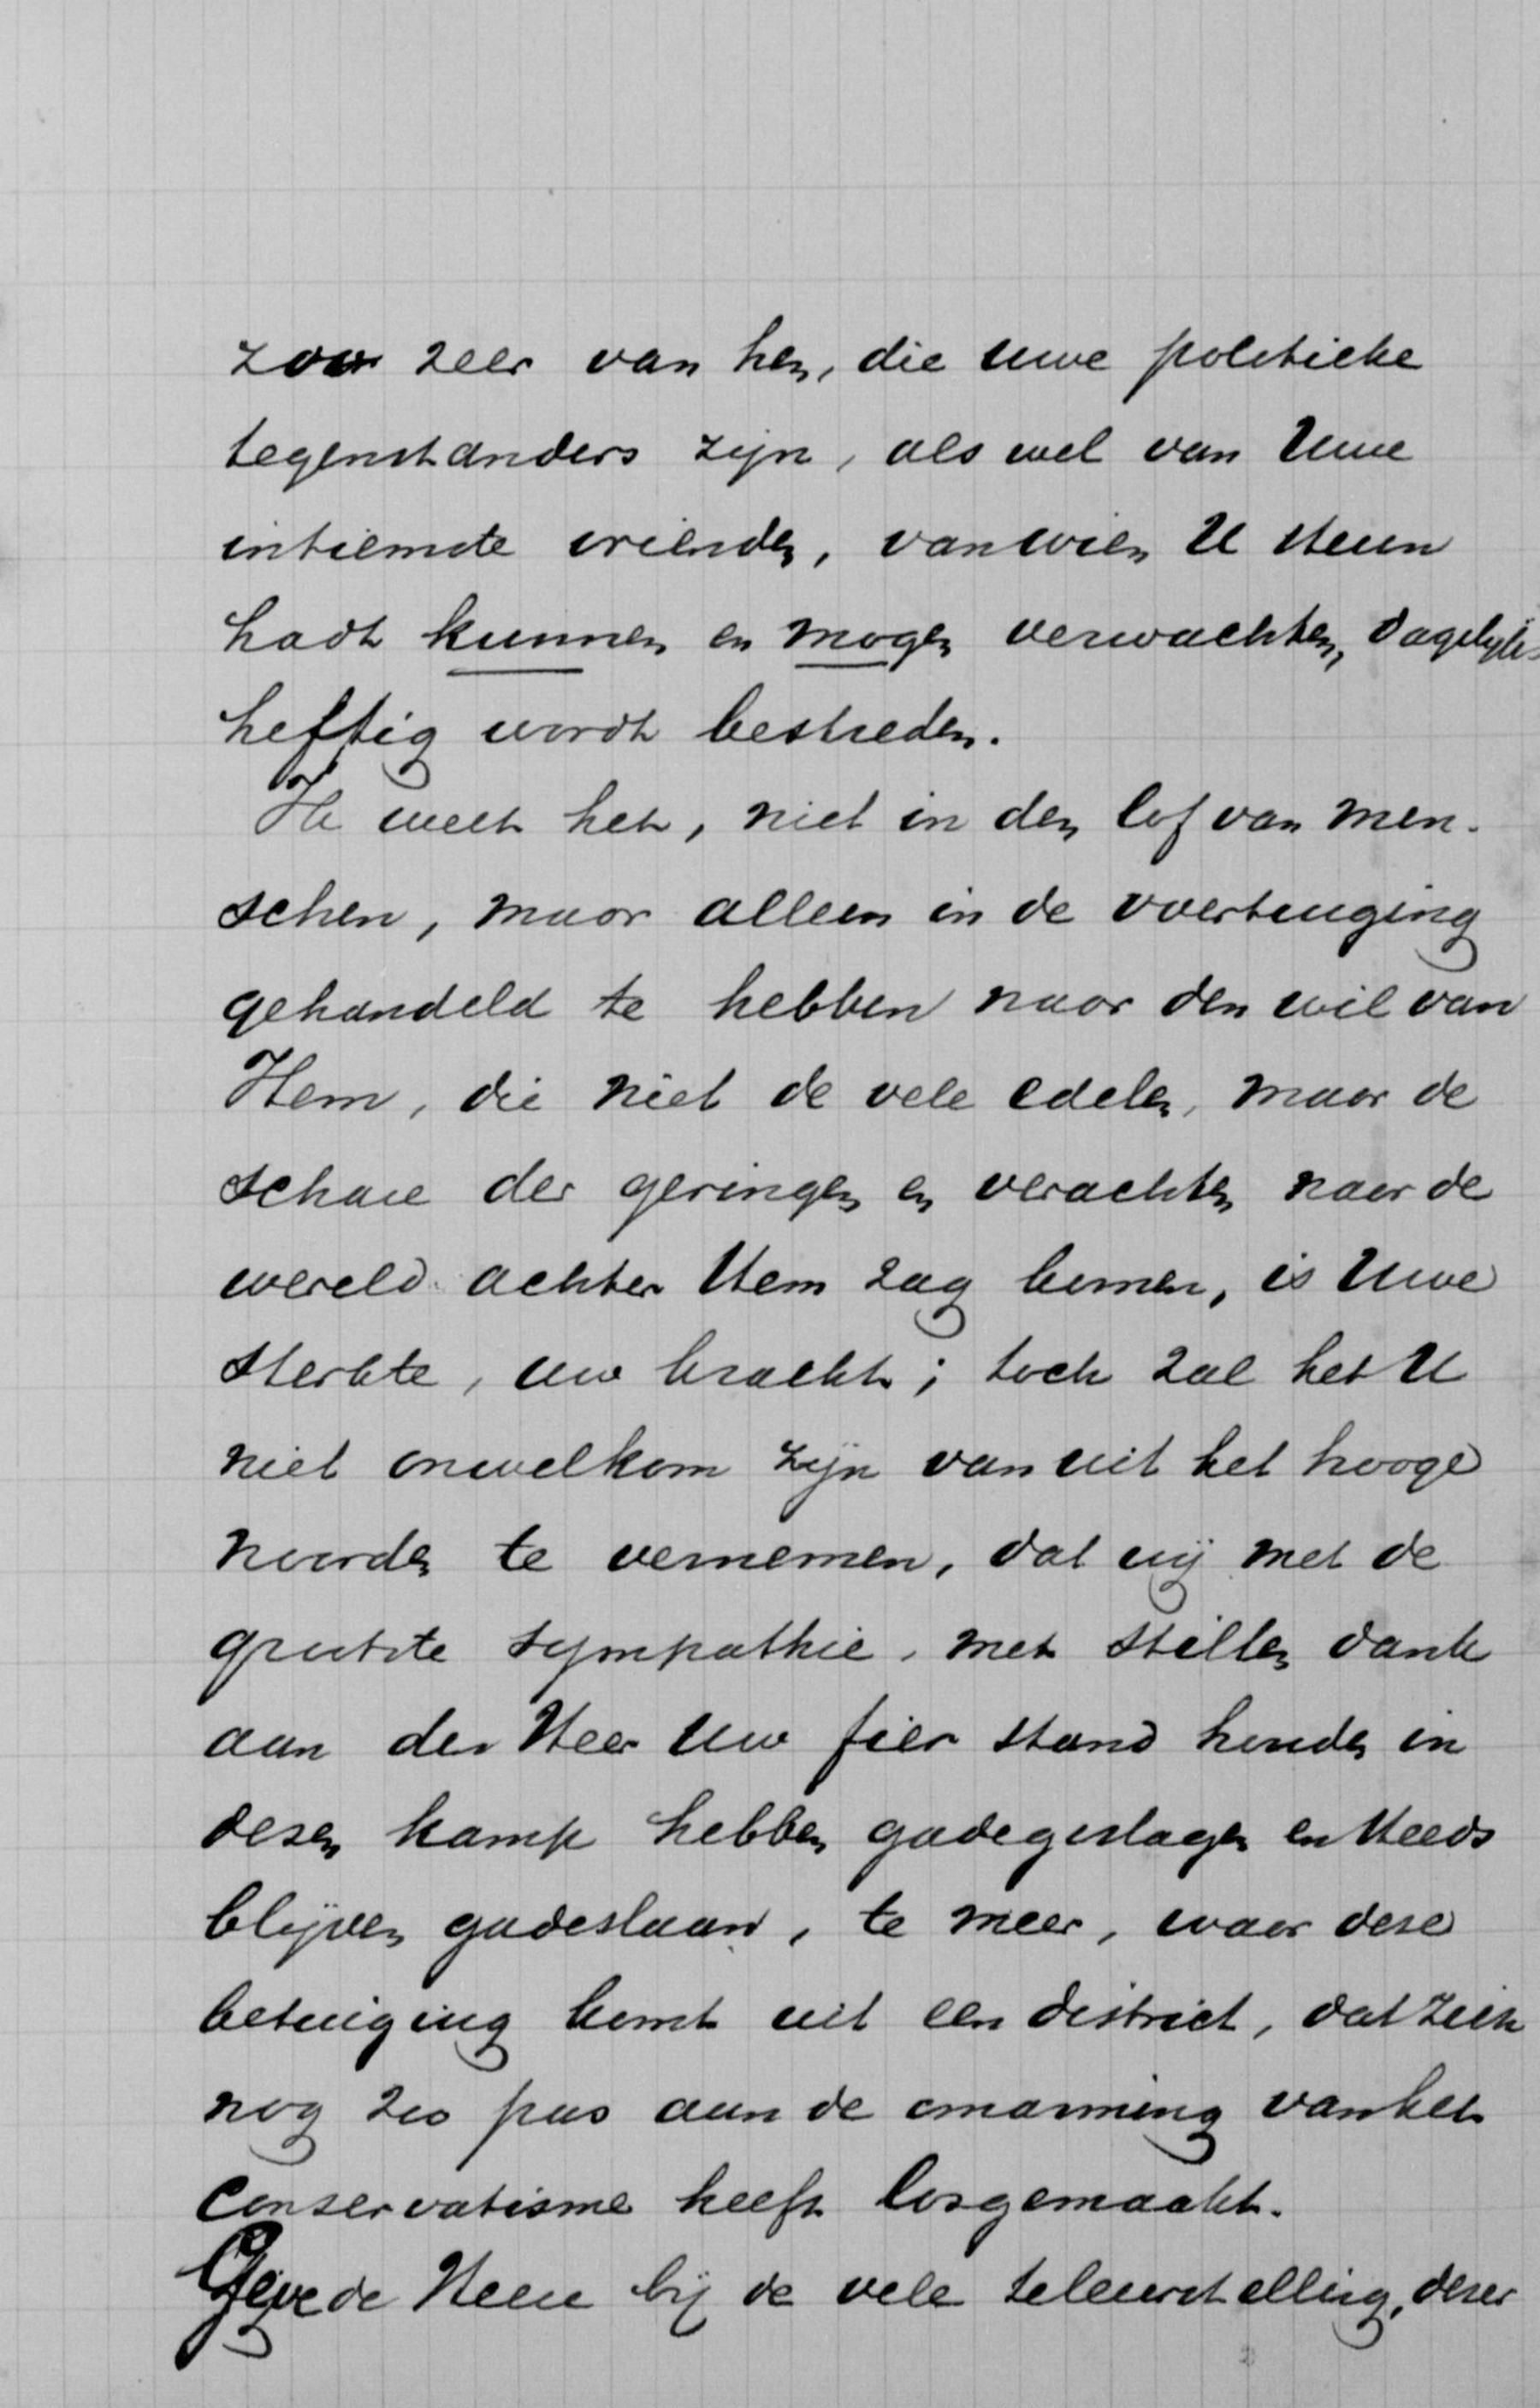 zoo zeer van hen, die uwe politieke
tegenstanders zijn, als wel van Uwe
intiemste vrienden, van wien U steun
hadt kunnen en mogen verwachten, dagelijks
heftig wordt bestreden.
Ik weet het, niet in den lof van men-
schen, maar alleen in de overtuiging
gehandeld te hebben naar den wil van
Hem, die niet de vele edelen, maar de
schare der geringen en verachten naar de
wereld achter Hem zag komen, is Uwe
sterkte, uw kracht; toch zal het U
niet onwelkom zijn van uit het hooge
noorden te vernemen, dat wij met de
grootste sympathie, met stillen dank
aan den Heer Uw fier stand houden in
dezen kamp hebben gadegeslagen en steeds
blijven gadeslaan, te meer, waar deze
betuiging komt uit een district, dat zich
nog zoo pas aan de omarming van het
conservatisme heeft losgemaakt.
Geve de Heere bij de vele teleurstelling, dezer